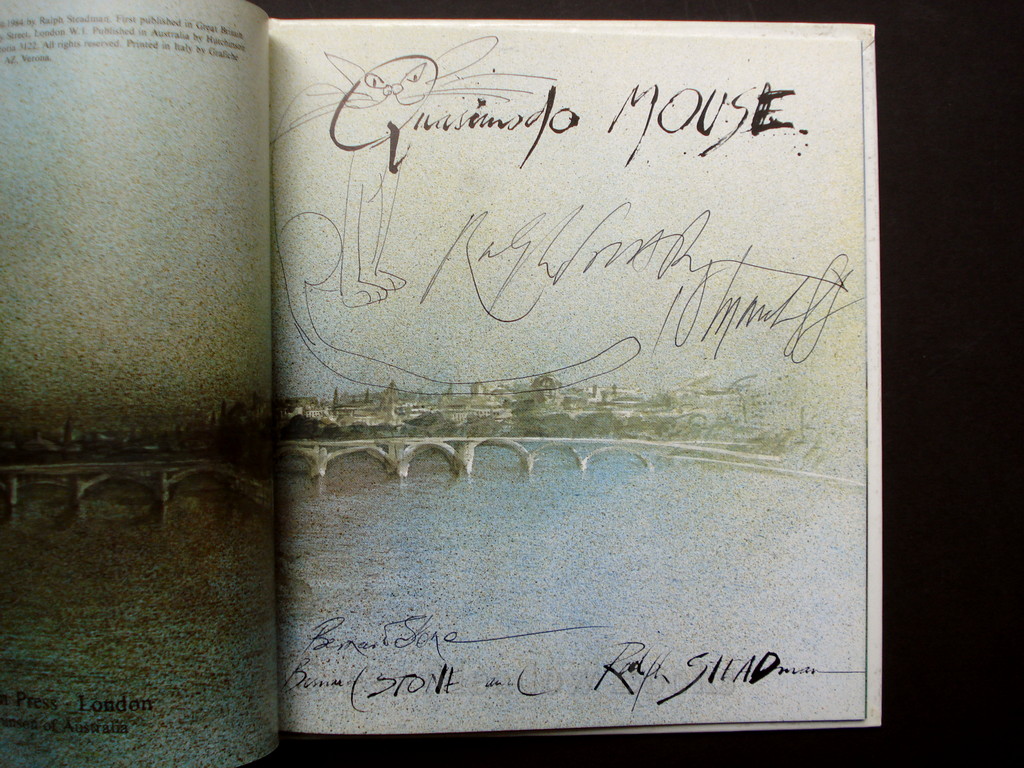 1984 by Ralph Steadman. First published in Great Britain
Street, London W.1. Published in Australia by Hutchinson
3122. All rights reserved. Printed in Italy by Grafiche
AZ, Verona.
Quasimodo MOUSE.
Ralph STEADman
Bernard Stone
Bernard STONE and Ralph STEADman
n Press - London
inson of Australia